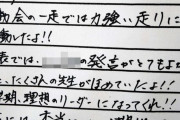 会の一走では力強い走りに
動したよ!!
表では、の発言がとてもよか
、たくさんの先生がほめていたよ!!
期、理想のリーダーになってくれ!!